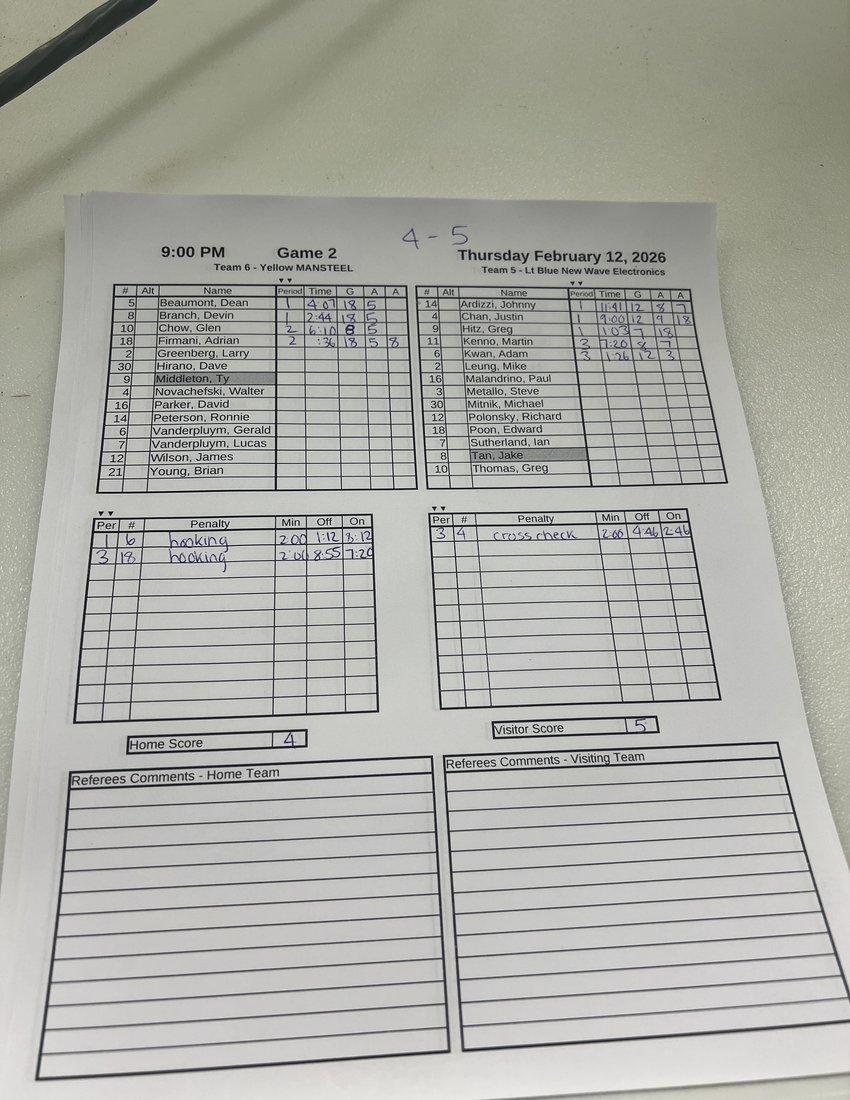 4 - 5
9:00 PM Game 2 Thursday February 12, 2026
Team 6 - Yellow MANSTEEL Team 5 - Lt Blue New Wave Electronics
# Alt Name Period Time G A A
5 Beaumont, Dean 1 4:07 18 5
8 Branch, Devin 1 2:44 18 5
10 Chow, Glen 2 6:10 8 5
18 Firmani, Adrian 2 :36 18 5 8
2 Greenberg, Larry
30 Hirano, Dave
9 Middleton, Ty
4 Novachefski, Walter
16 Parker, David
14 Peterson, Ronnie
6 Vanderpluym, Gerald
7 Vanderpluym, Lucas
12 Wilson, James
21 Young, Brian
# Alt Name Period Time G A A
14 Ardizzi, Johnny 1 11:41 12 8 7
4 Chan, Justin 1 9:00 12 9 18
9 Hitz, Greg 1 1:03 7 18
11 Kenno, Martin 3 7:20 8 7
6 Kwan, Adam 3 1:26 12 3
2 Leung, Mike
16 Malandrino, Paul
3 Metallo, Steve
30 Mitnik, Michael
12 Polonsky, Richard
18 Poon, Edward
7 Sutherland, Ian
8 Tan, Jake
10 Thomas, Greg
Per # Penalty Min Off On
1 6 hooking 2:00 1:12 8:12
3 18 hooking 2:00 8:55 7:20
Per # Penalty Min Off On
3 4 cross check 2:00 4:46 2:46
Home Score 4
Visitor Score 5
Referees Comments - Home Team
Referees Comments - Visiting Team